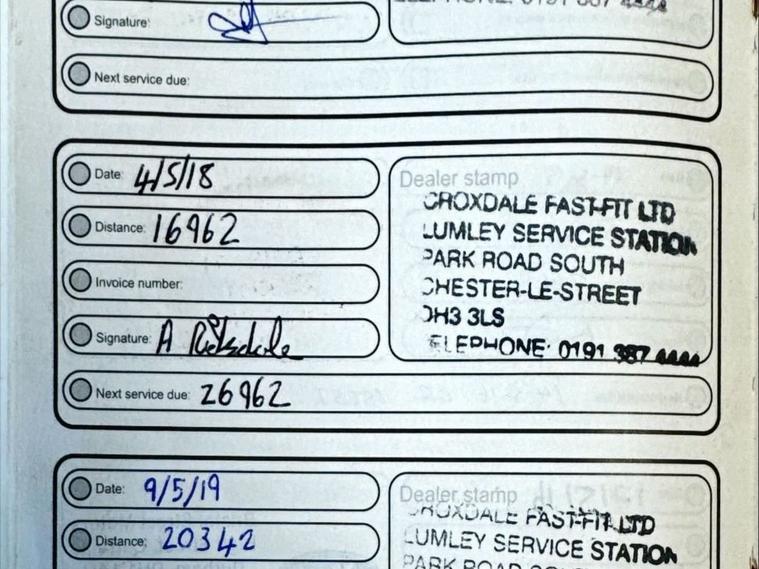 TELEPHONE: 0191 387 4444
Signature:
Next service due:
Date: 4/5/18
Distance: 16962
Invoice number:
Signature: A
Next service due: 26962
Dealer stamp
CROXDALE FAST-FIT LTD
LUMLEY SERVICE STATION
PARK ROAD SOUTH
CHESTER-LE-STREET
DH3 3LS
TELEPHONE: 0191 387 4444
Date: 9/5/19
Distance: 20342
Dealer stamp
CROXDALE FAST-FIT LTD
LUMLEY SERVICE STATION
PARK ROAD